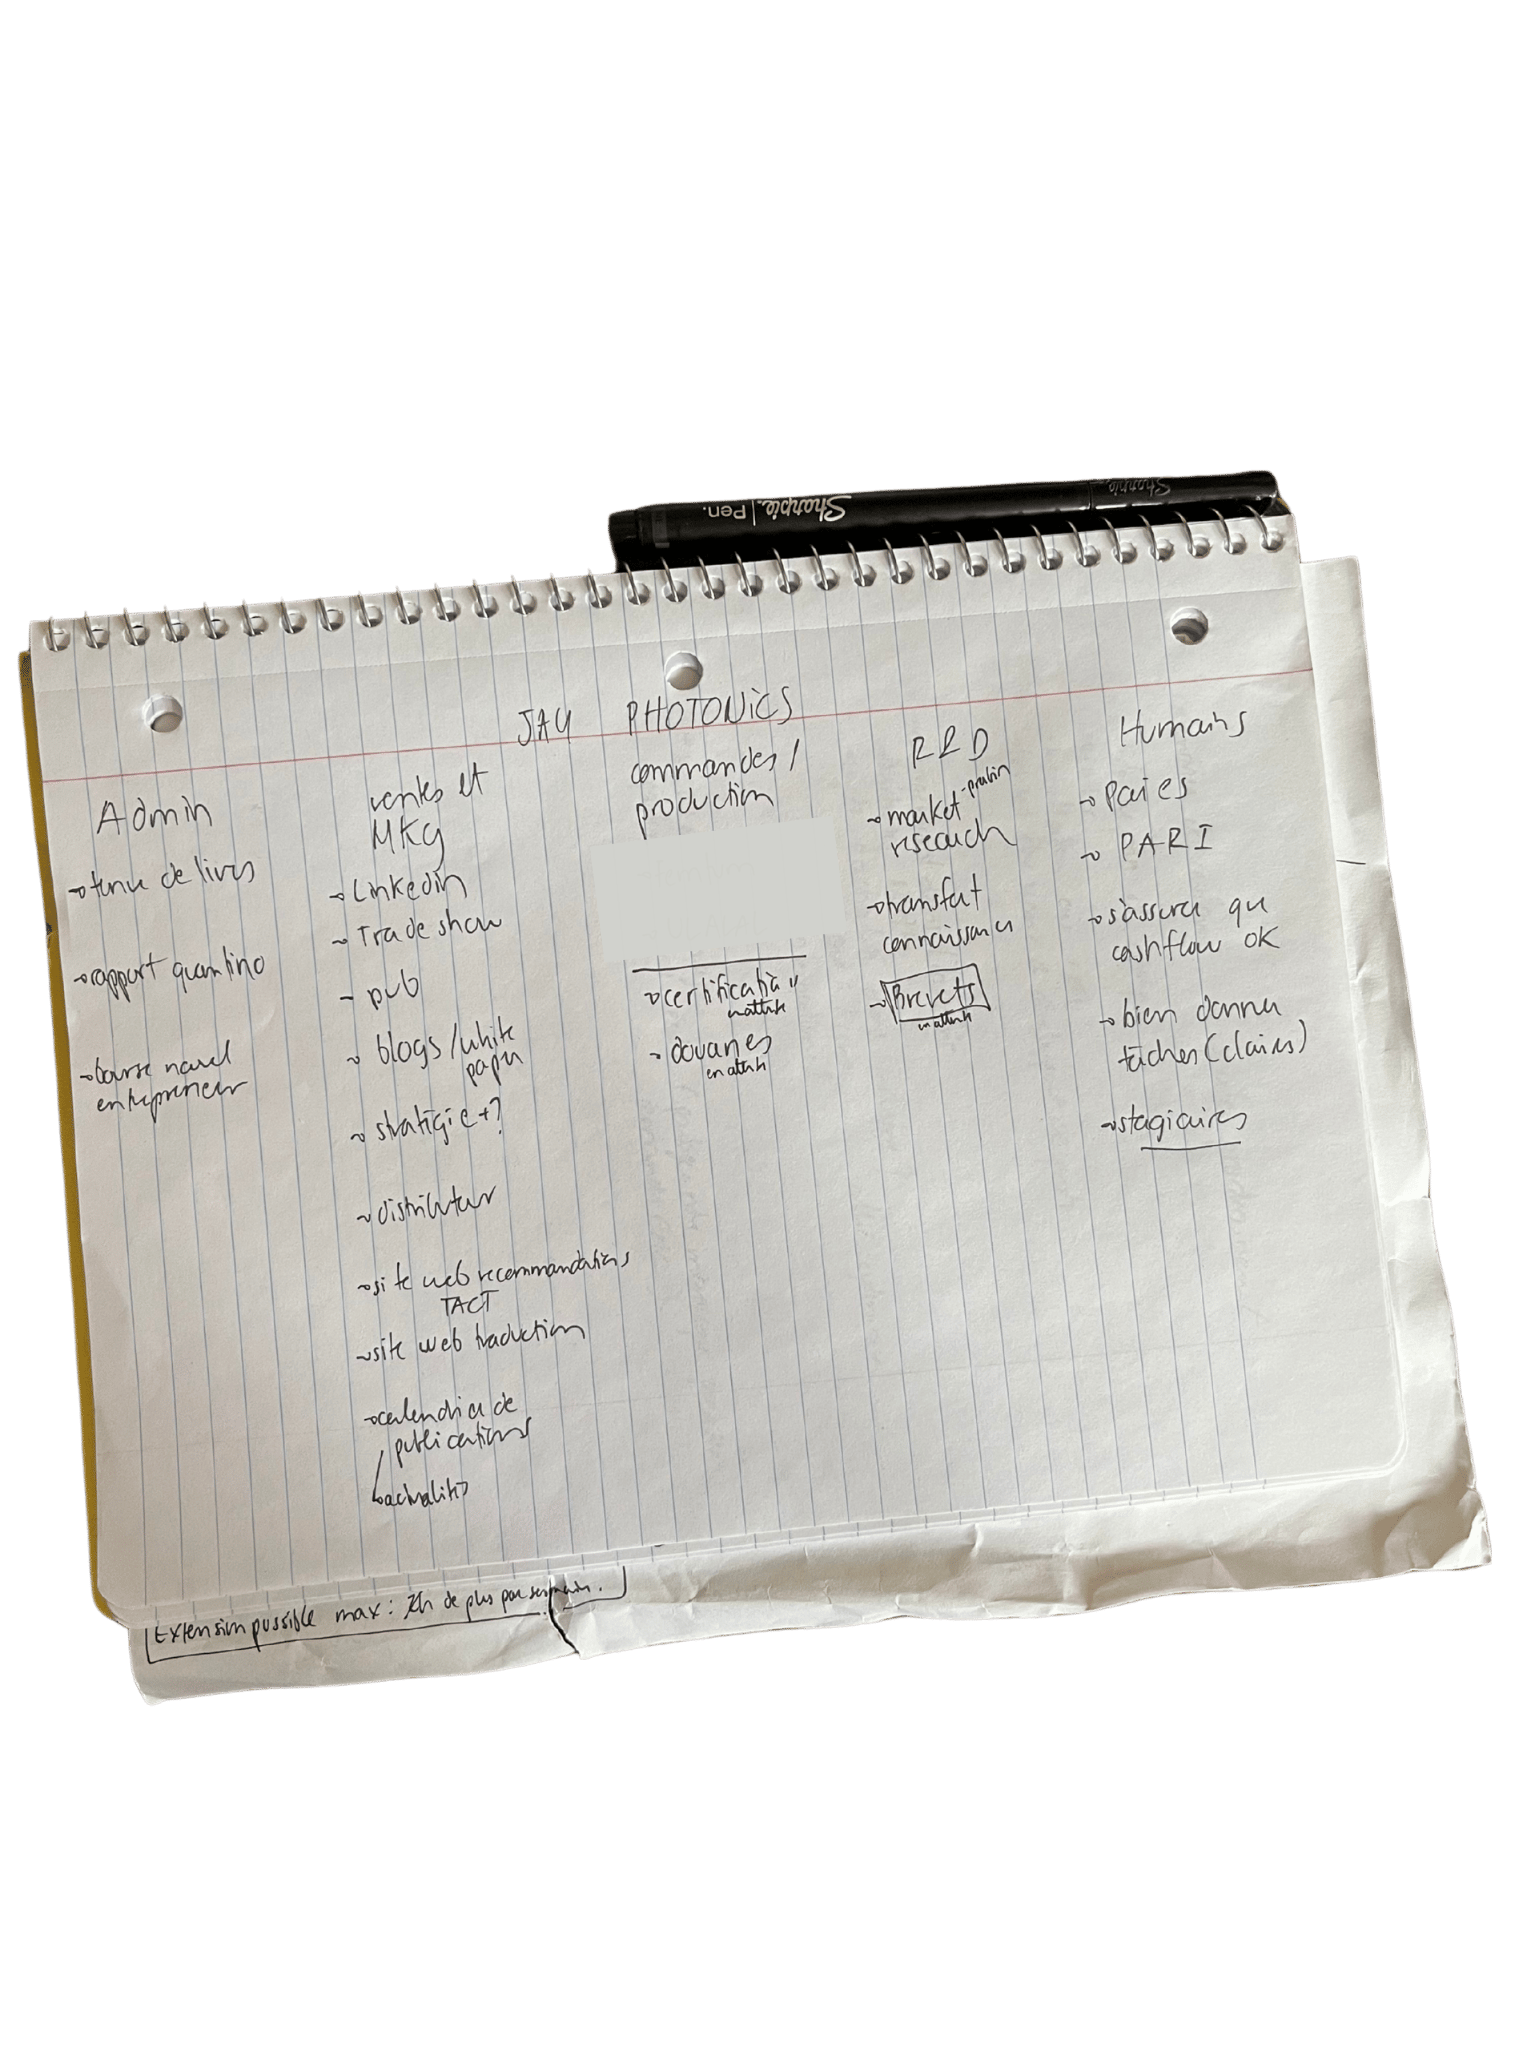 Sharpie. | Pen.
Sharpie
JAY PHOTONICS
Admin
→ tenue de livres
→ rapport quantino
→ bourse nouvel
entrepreneur
ventes et
MKG
→ Linkedin
→ Trade show
- pub
→ blogs / white
paper
→ stratégie +?
→ distributeur
→ site web recommandations
TACT
→ site web traduction
→ calendrier de
publications
→ actualités
commandes /
production
→ certification
en attente
→ douanes
en attente
R&D
→ market
research
→ transfert
connaissances
→ Brevets
en attente
Humains
→ Paies
→ PARI
→ s'assurer que
cashflow OK
→ bien donner
tâches (claires)
→ stagiaires
Extension possible max: 2h de plus par semaine.